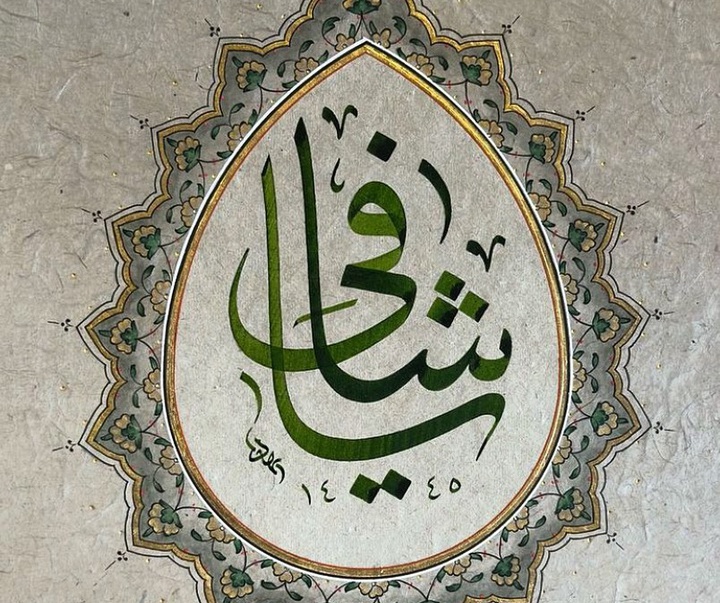 يا شافي
١٤٤٥